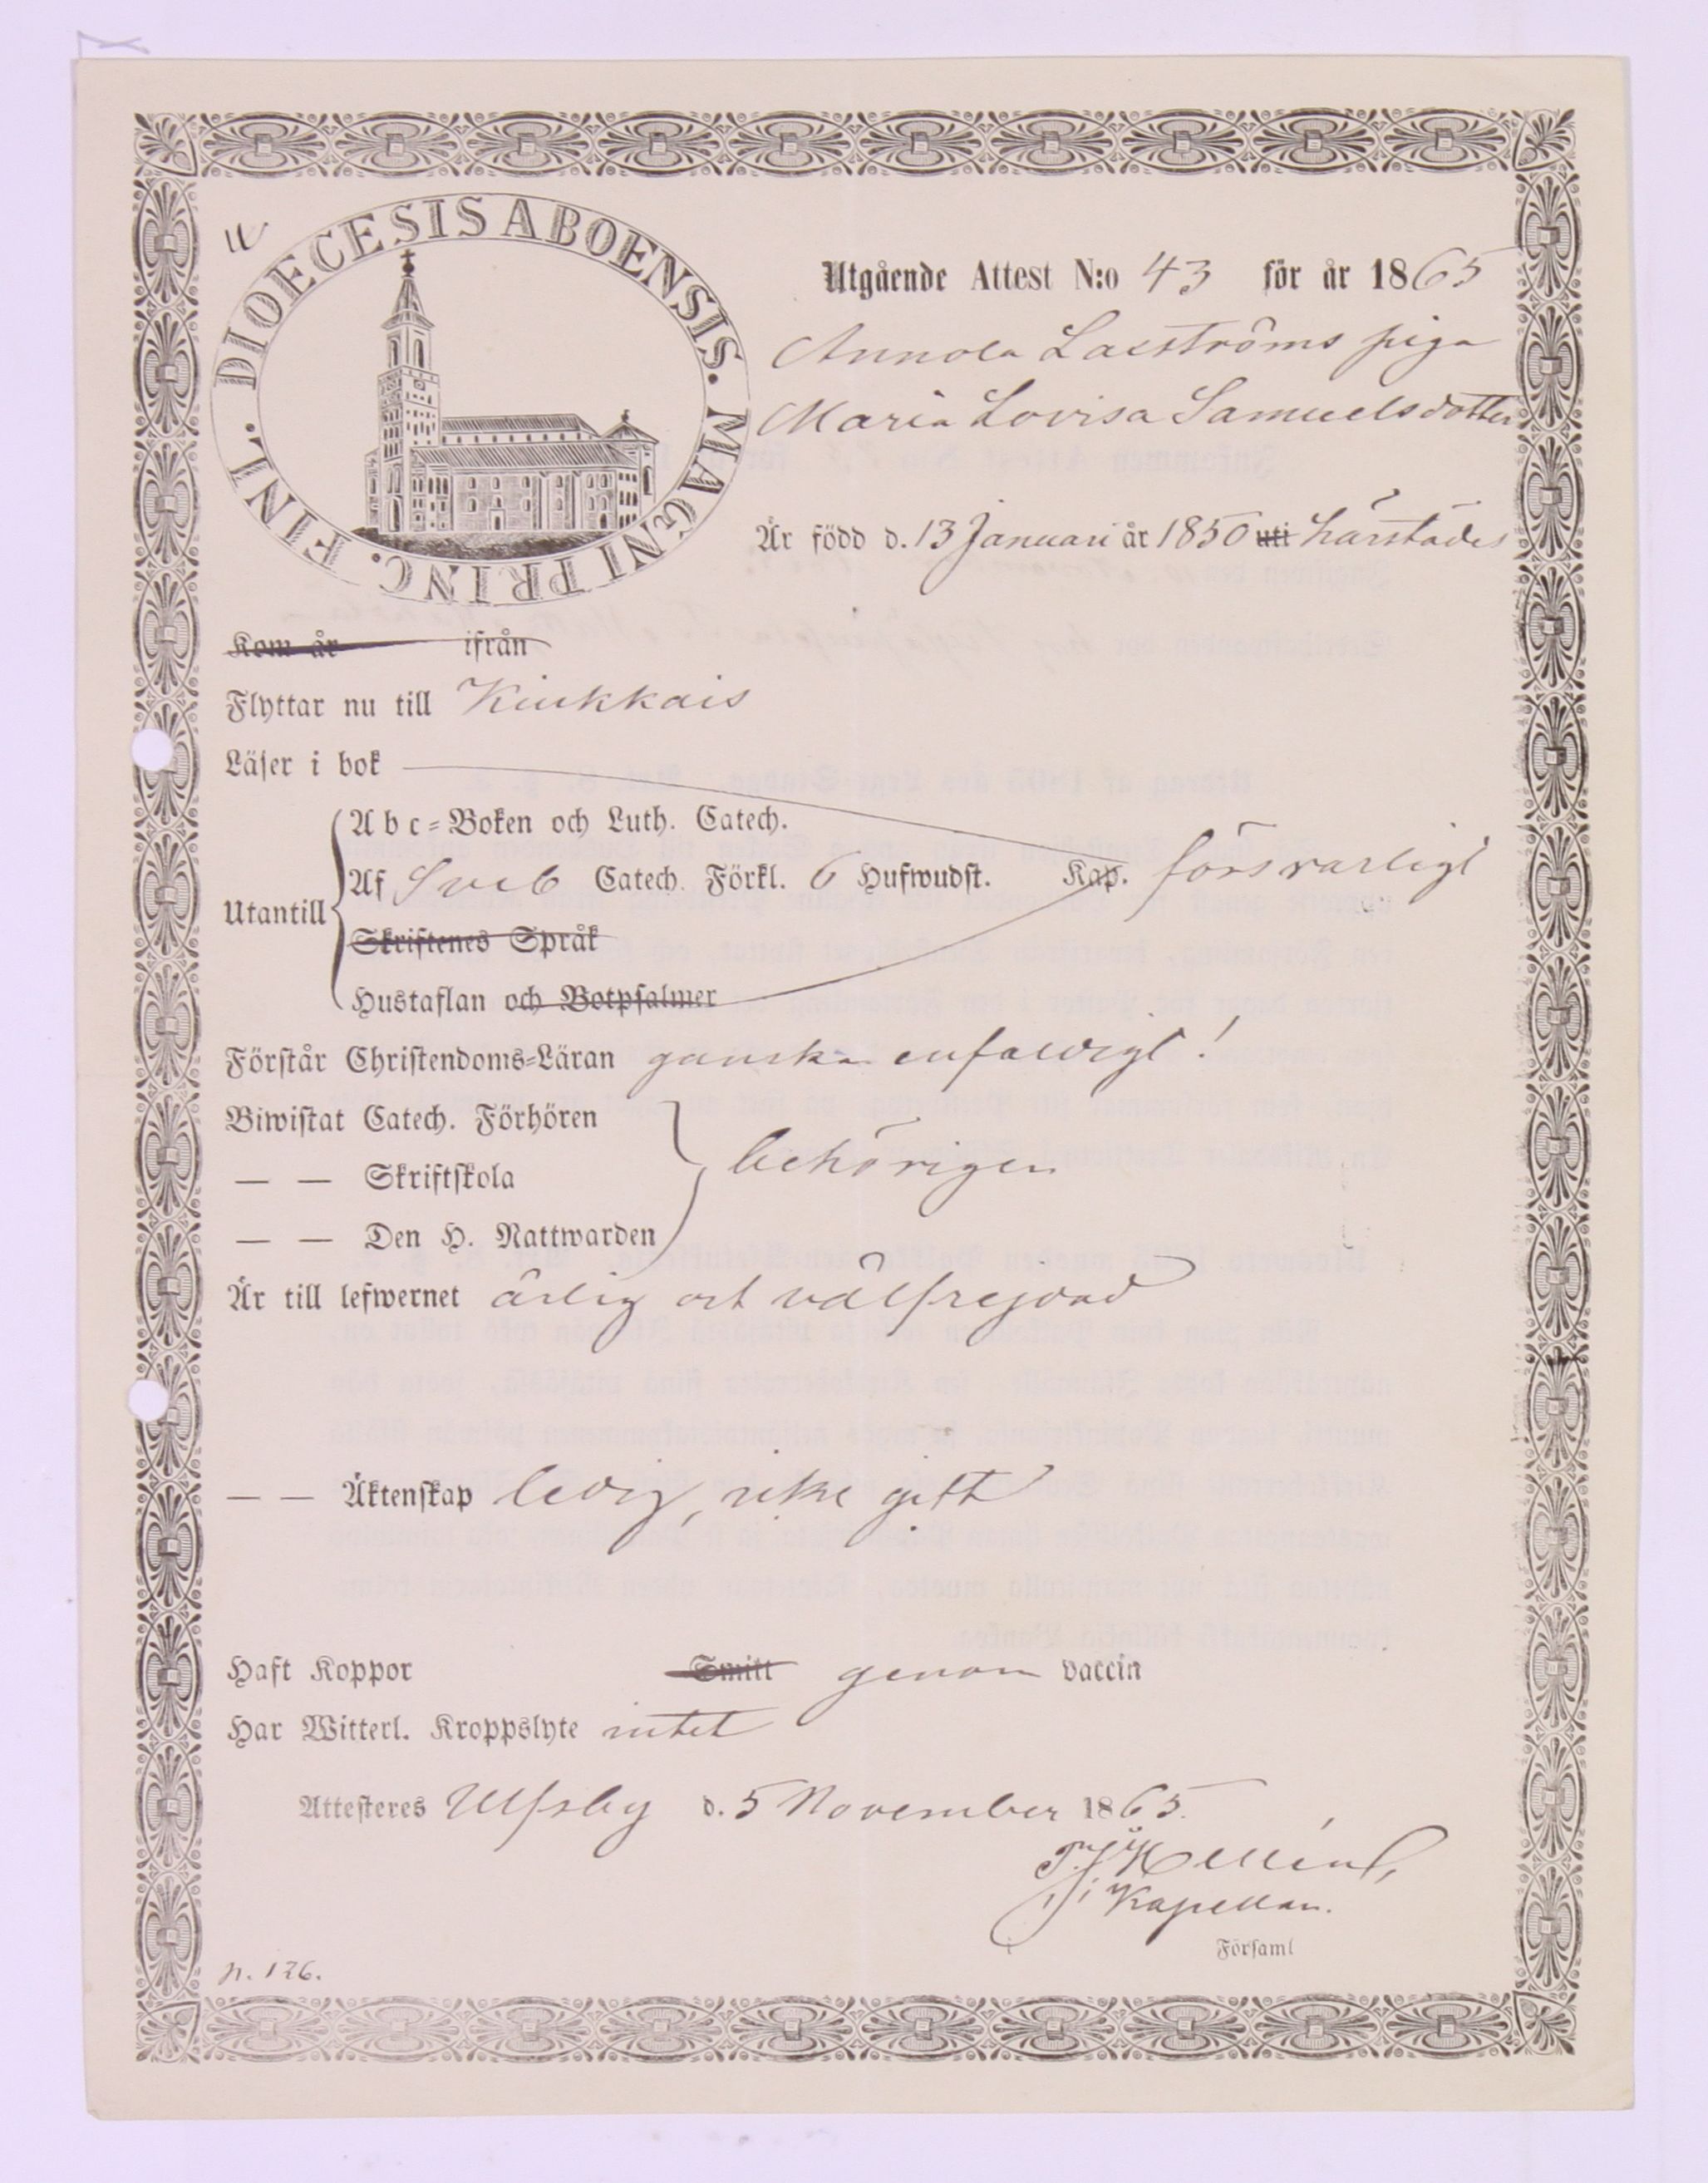 DIOECESIS ABOENSIS. MAGNI PRINC. FINL.
Utgående Attest N:o 43 för år 1865
Annola Laxströms piga
Maria Lovisa Samuelsdotter
Är född d. 13 Januari år 1850 uti härstädes
Kom år ifrån
Flyttar nu till Kiukkais
Läser i bok
Abc-Boken och Luth. Catech.
Utantill Af Sveb Catech. Förkl. 6 Hufwudst. Kap. försvarligt
Skriftenes Språk
Hustaflan och Botpsalmer
Förstår Christendoms-Läran ganska enfaldigt!
Biwistat Catech. Förhören
— — Skriftskola behörigen
— — Den H. Nattwarden
Är till lefwernet ärlig och välfrejdad
— — Äktenskap ledig, icke gift
Haft Koppor Smitt genom vaccin
Har Witterl. Kroppslyte intet
Attesteres Ulfsby d. 5 November 1865.
Kapellan.
Församl
p. 126.